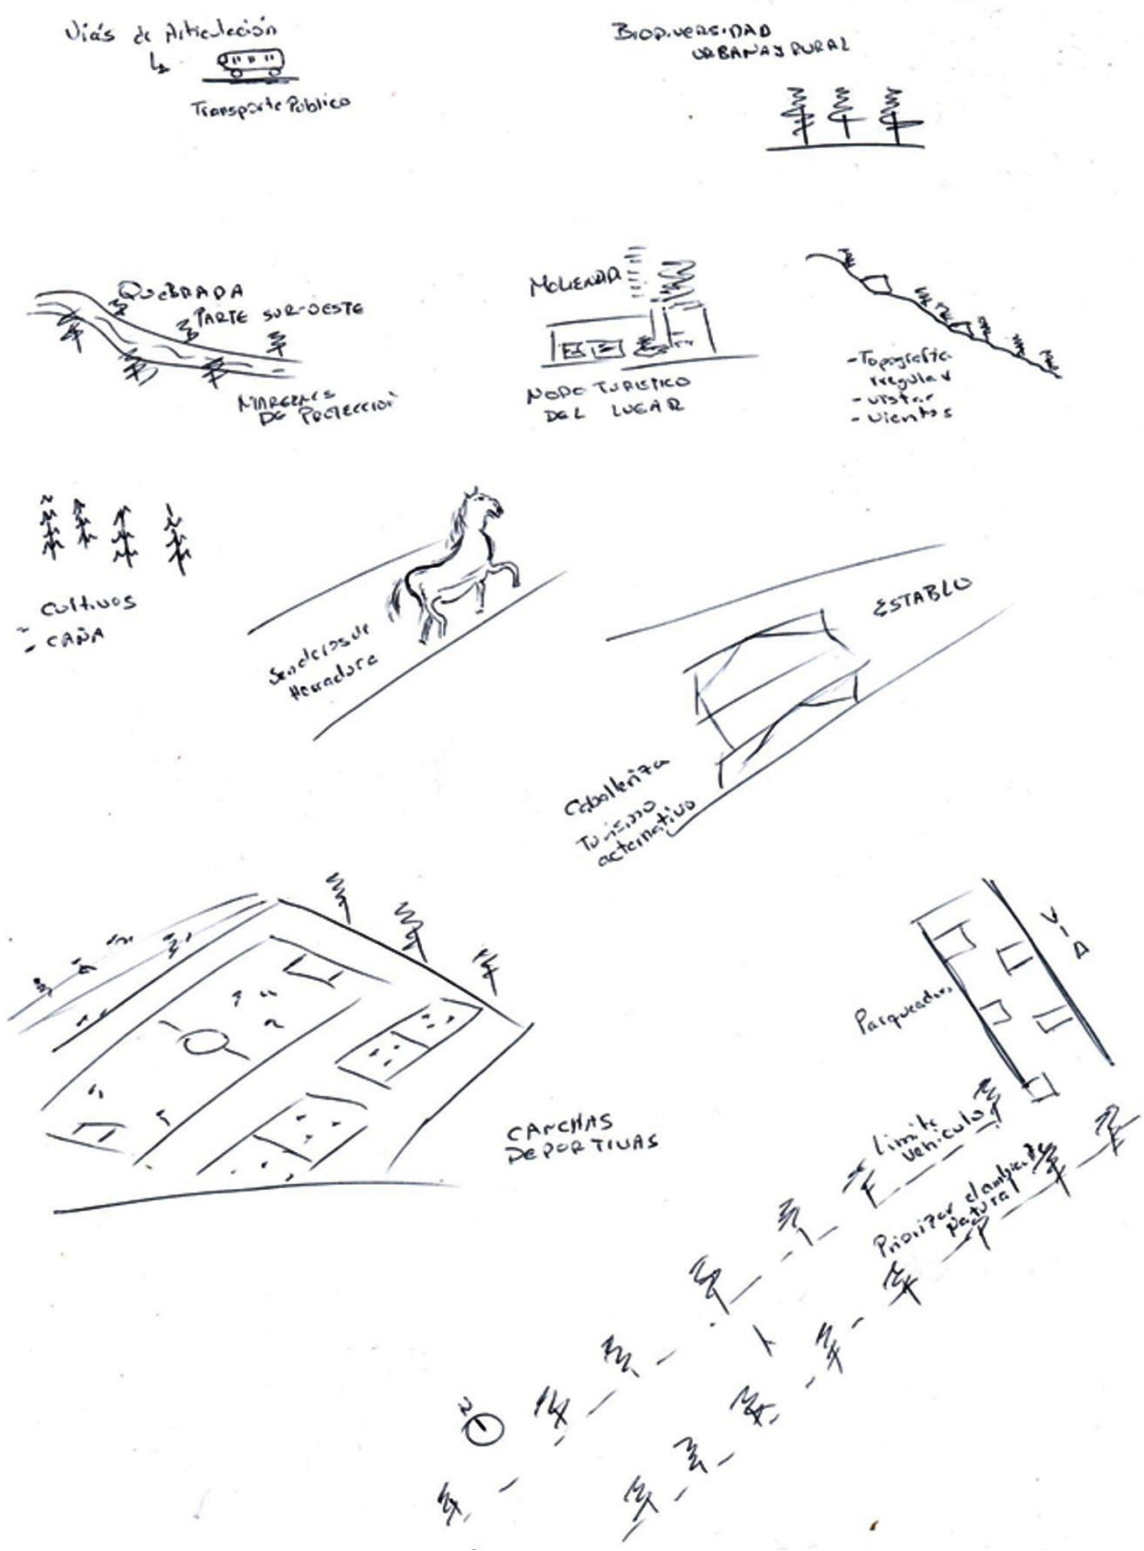 Vías de Articulación
Transporte Público
BIODIVERSIDAD
URBANA Y RURAL
QUEBRADA
PARTE SUR-OESTE
MARGENES
DE PROTECCIÓN
MOLIENDA
NODO TURISTICO
DEL LUGAR
- Topografía
irregular
- vistas
- vientos
Cultivos
- CAÑA
Senderos de
Herradura
ESTABLO
Caballeriza
Turismo
alternativo
CANCHAS
DEPORTIVAS
VIA
Parqueadero
Limite
vehiculo
Priorizar el ambiente
Natural
N